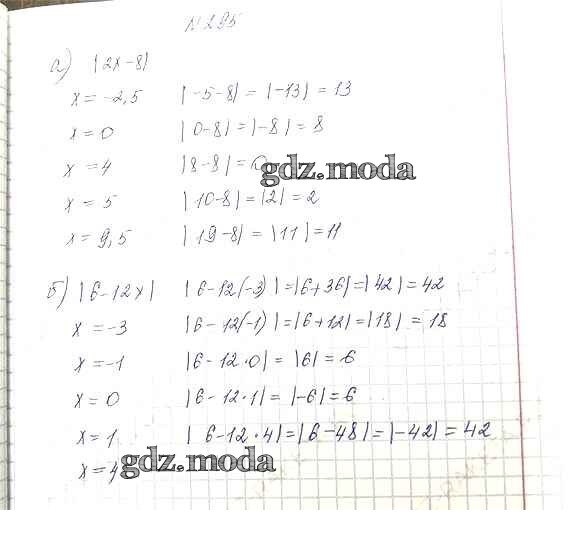 № 295
а) |2x-8|
x = -2,5 |-5-8| = |-13| = 13
x = 0 |0-8| = |-8| = 8
x = 4 |8-8| = 0
gdz.moda
x = 5 |10-8| = |2| = 2
x = 9,5 |19-8| = |11| = 11
б) |6-12x| |6-12(-3)| = |6+36| = |42| = 42
x = -3 |6-12(-1)| = |6+12| = |18| = 18
x = -1 |6-12·0| = |6| = 6
x = 0 |6-12·1| = |-6| = 6
x = 1 |6-12·4| = |6-48| = |-42| = 42
x = 4
gdz.moda